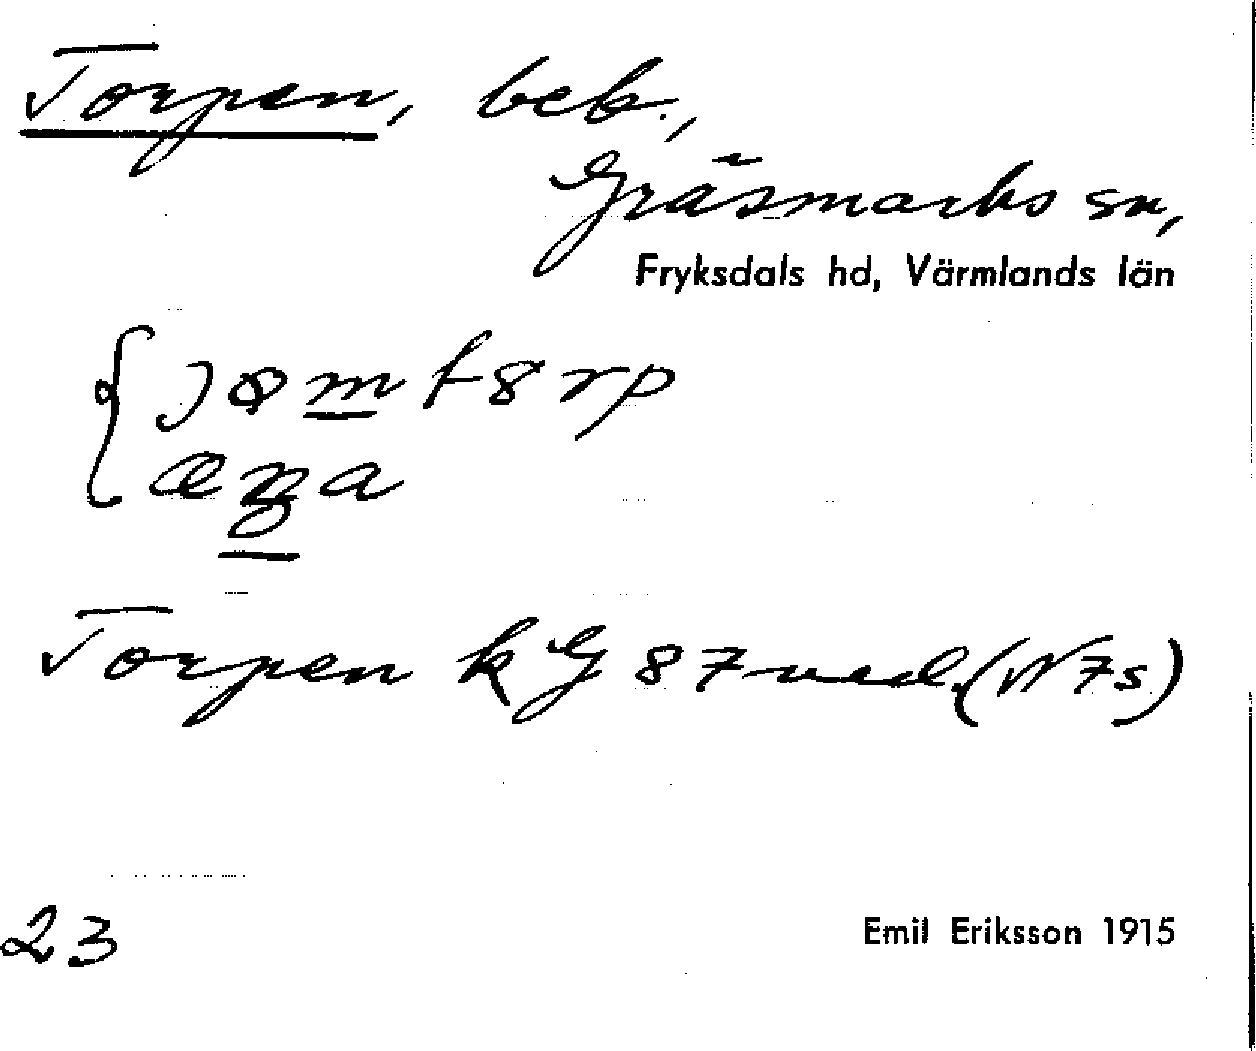 Torpen, beb.,
Gräsmarks sn,
Fryksdals hd, Värmlands län
Torpen kG 87 ned. (N7s)
23
Emil Eriksson 1915